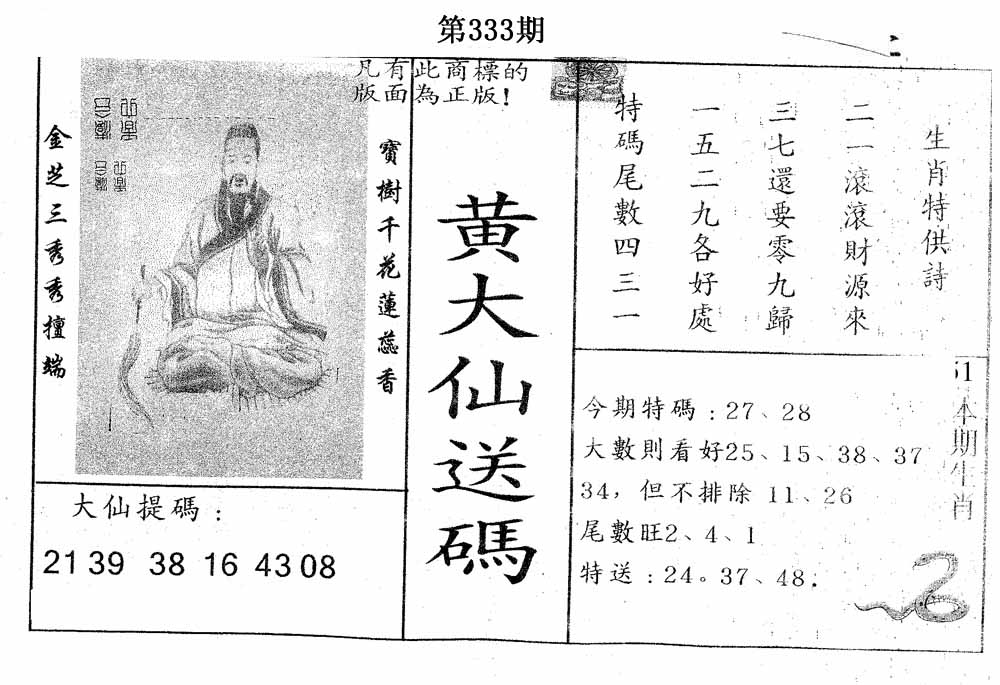 第333期
凡有此商標的
版面為正版!
金芝三秀秀擅端
寶樹千花蓮蕊香
黄大仙送碼
大仙提碼:
21 39 38 16 43 08
生肖特供詩
二一滾滾財源來
三七還要零九歸
一五二九各好處
特碼尾數四三一
今期特碼:27、28
大數則看好25、15、38、37
34，但不排除 11、26
尾數旺2、4、1
特送:24。37、48.
本期生肖